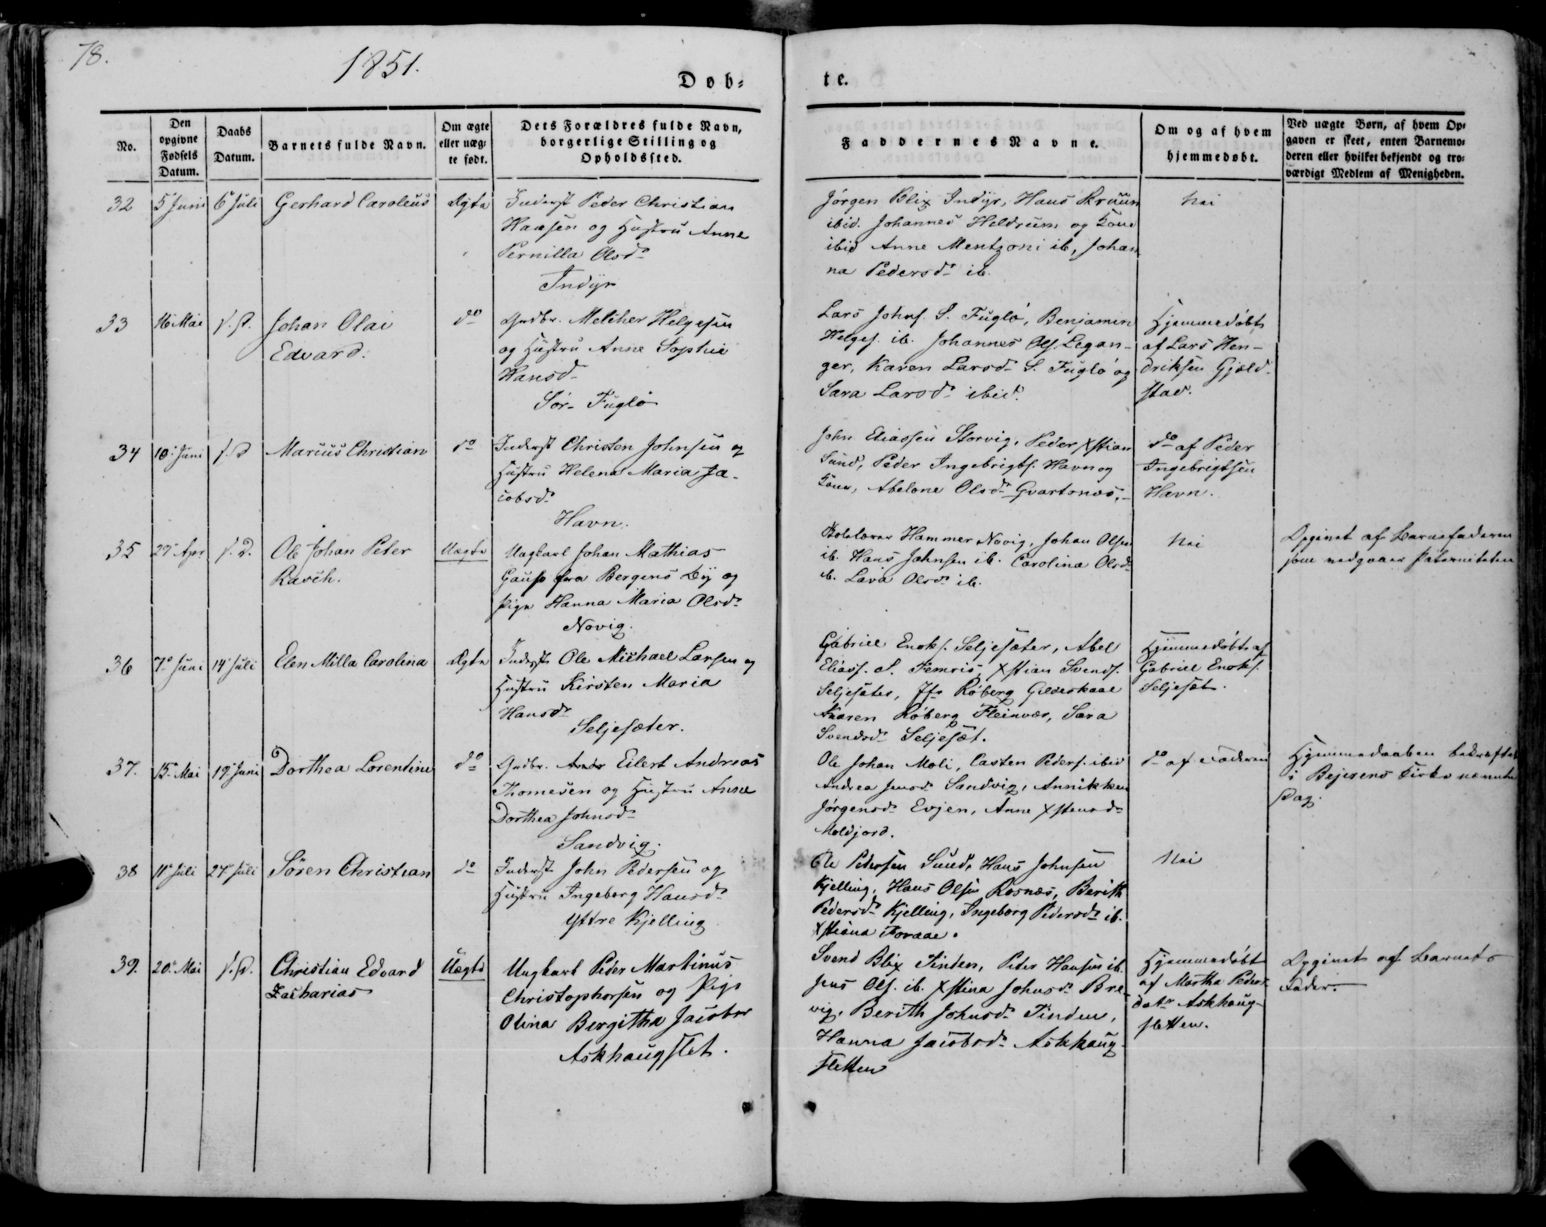 78.
1851.
Dob-
te.
No.
Den opgivne Fødsels Datum.
Daabs Datum.
Barnets fulde Navn.
Om ægte eller uægte født.
Dets Forældres fulde Navn, borgerlige Stilling og Opholdssted.
Faddernes Navne.
Om og af hvem hjemmedøbt.
Ved uægte Børn, af hvem Opgaven er skeet, enten Barnemoderen eller hvilket bekjendt og troværdigt Medlem af Menigheden.
32
5 Juni
6 Juli
Gerhard Caroleus
Ægte
Inderst Peder Christian
Hansen og Hustru Anne
Pernilla Olsd.
Indyr
Jørgen Blix Indyr, Hans
ibid. Johannes Heldrum og Kone
ibid Anne Mentzoni ib, Johan
na Pedersd. ib.
Nei
33
16 Mai
s. D.
Johan Olai
Edvard.
do
Gudbr. Melcher Helgesen
og Hustru Anne Sophie
Hansd.
Sør-Fuglø
Lars Johns. S. Fuglø, Benjamin
Helges. ib. Johannes Ols. Legan-
ger, Karen Larsd. S. Fuglø og
Sara Larsd. ibid.
Hjemmedøbt
af Lars Hen-
driksen Gjeld-
stad.
34
10 Juni
s. D
Marius Christian
do
Inderst Christen Johnsen og
Hustru Helena Maria Ja-
cobsd.
Havn.
John Eliassen Storvig, Peder Xstian
Sund, Peder Ingebrigts. Havn og
Kone, Abelone Olsd. Gvartsnæs.
do af Peder
Ingebrigtsen
Havn.
35
27 Apr
s. D.
Ole Johan Peter
Rasch.
Uægte
Ungkarl Johan Mathias
Gaus fra Bergens By og
Pige Hanna Maria Olsd.
Novig.
Skolelærer Hammer Novig, Johan Olsen
ib. Hans Johnsen ib. Carolina Olsd.
ib. Lava Olsd. ib.
Nei
Opgivet af Barnefaderen
som vedgaaer Paterniteten
36
7 Juni
14 Juli
Elen Milla Carolina
Ægte
Inderst Ole Michael Larsen og
Hustru Kirsten Maria
Hansd.
Seljesæter.
Gabriel Enoks. Seljesæter, Abel
Eliass. S. Femris, Xstian Svends.
Seljesæter, Jfr Røberg Gildeskaal
Karen Røberg Fleinvær, Sara
Svendsd. Seljesæt.
Hjemmedøbt af
Gabriel Enoks.
Seljesæt.
37.
15 Mai
19 Juni
Dorthea Lorentine
do
Gudbr. Eilert Andreas
Thomesen og Hustru Anne
Dorthea Johnsd.
Sandvig.
Ole Johan Moli, Casten Peders. ibid
Andrea Jensd. Sandvig, Annikken
Jørgensd. Evjen, Anne Xstensd.
Moldjord.
do af Faderen
Hjemmedaaben bekræftet
i Bejerens Kirke nævnte
Dag.
38
11 Juli
27 Juli
Søren Christian
do
Inderst John Pedersen og
Hustru Ingeberg Hansd.
Yttre Kjelling
Ole Pedersen Sund, Hans Johnsen
Kjelling, Hans Olsen Rosnæs, Berith
Pedersd. Kjelling, Ingeborg Pedersd. ib.
Xstiana
Nei
39.
20 Mai
s. D.
Christian Edvard
Zacharias
Uægte
Ungkarl Peder Martinus
Christophersen og Pige
Olina Bergitha Jacobsd.
Askhaugslet.
Svend Blix Tinden, Peder Hansen ib.
Jens Ols. ib. Xstina Johnsd. Bre-
vig, Berith Johnsd. Tinden,
Hanna Jacobsd. Askhaug-
sletten
Hjemmedøbt
af Martha Peders-
datr Askhaug-
sletten.
Opgivet af Barnets
Fader.